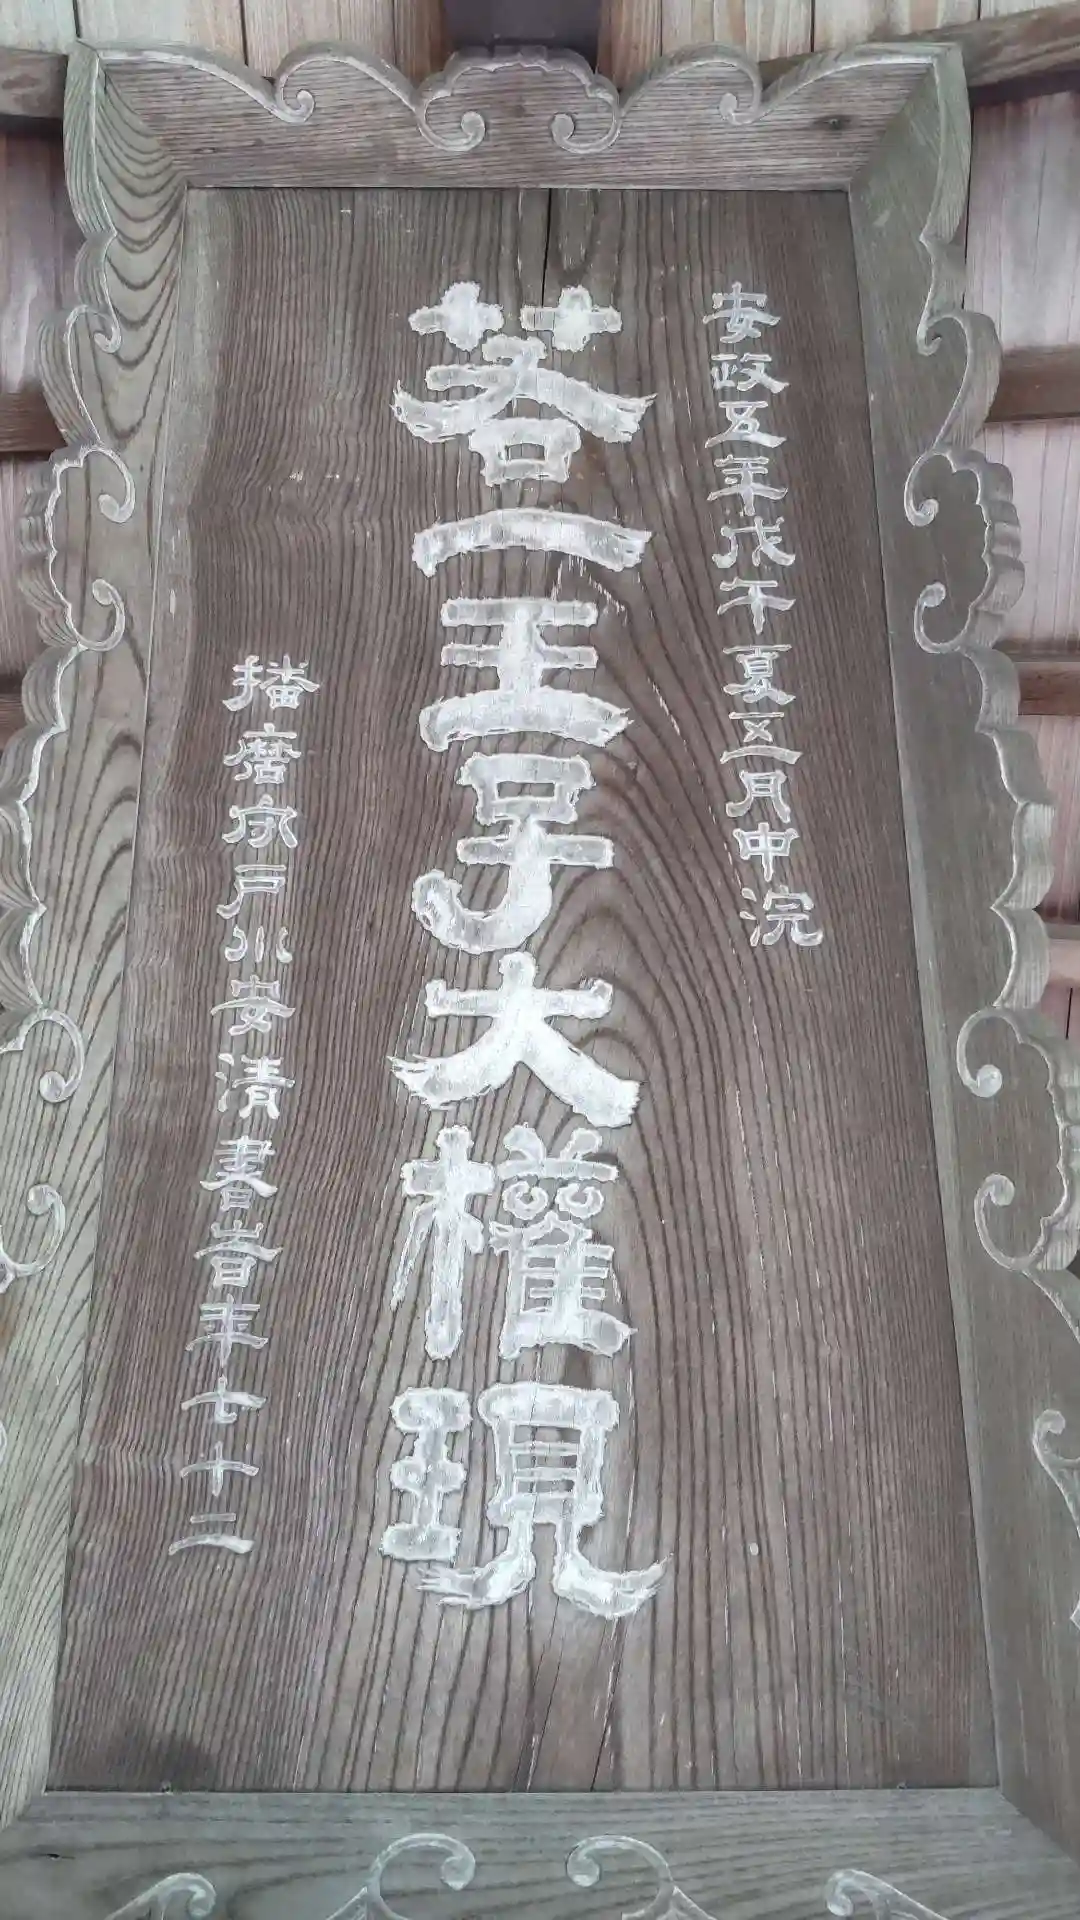 安政五年戊午夏五月中浣
若一王子大權現
播磨宍戸川安清書旹年七十二